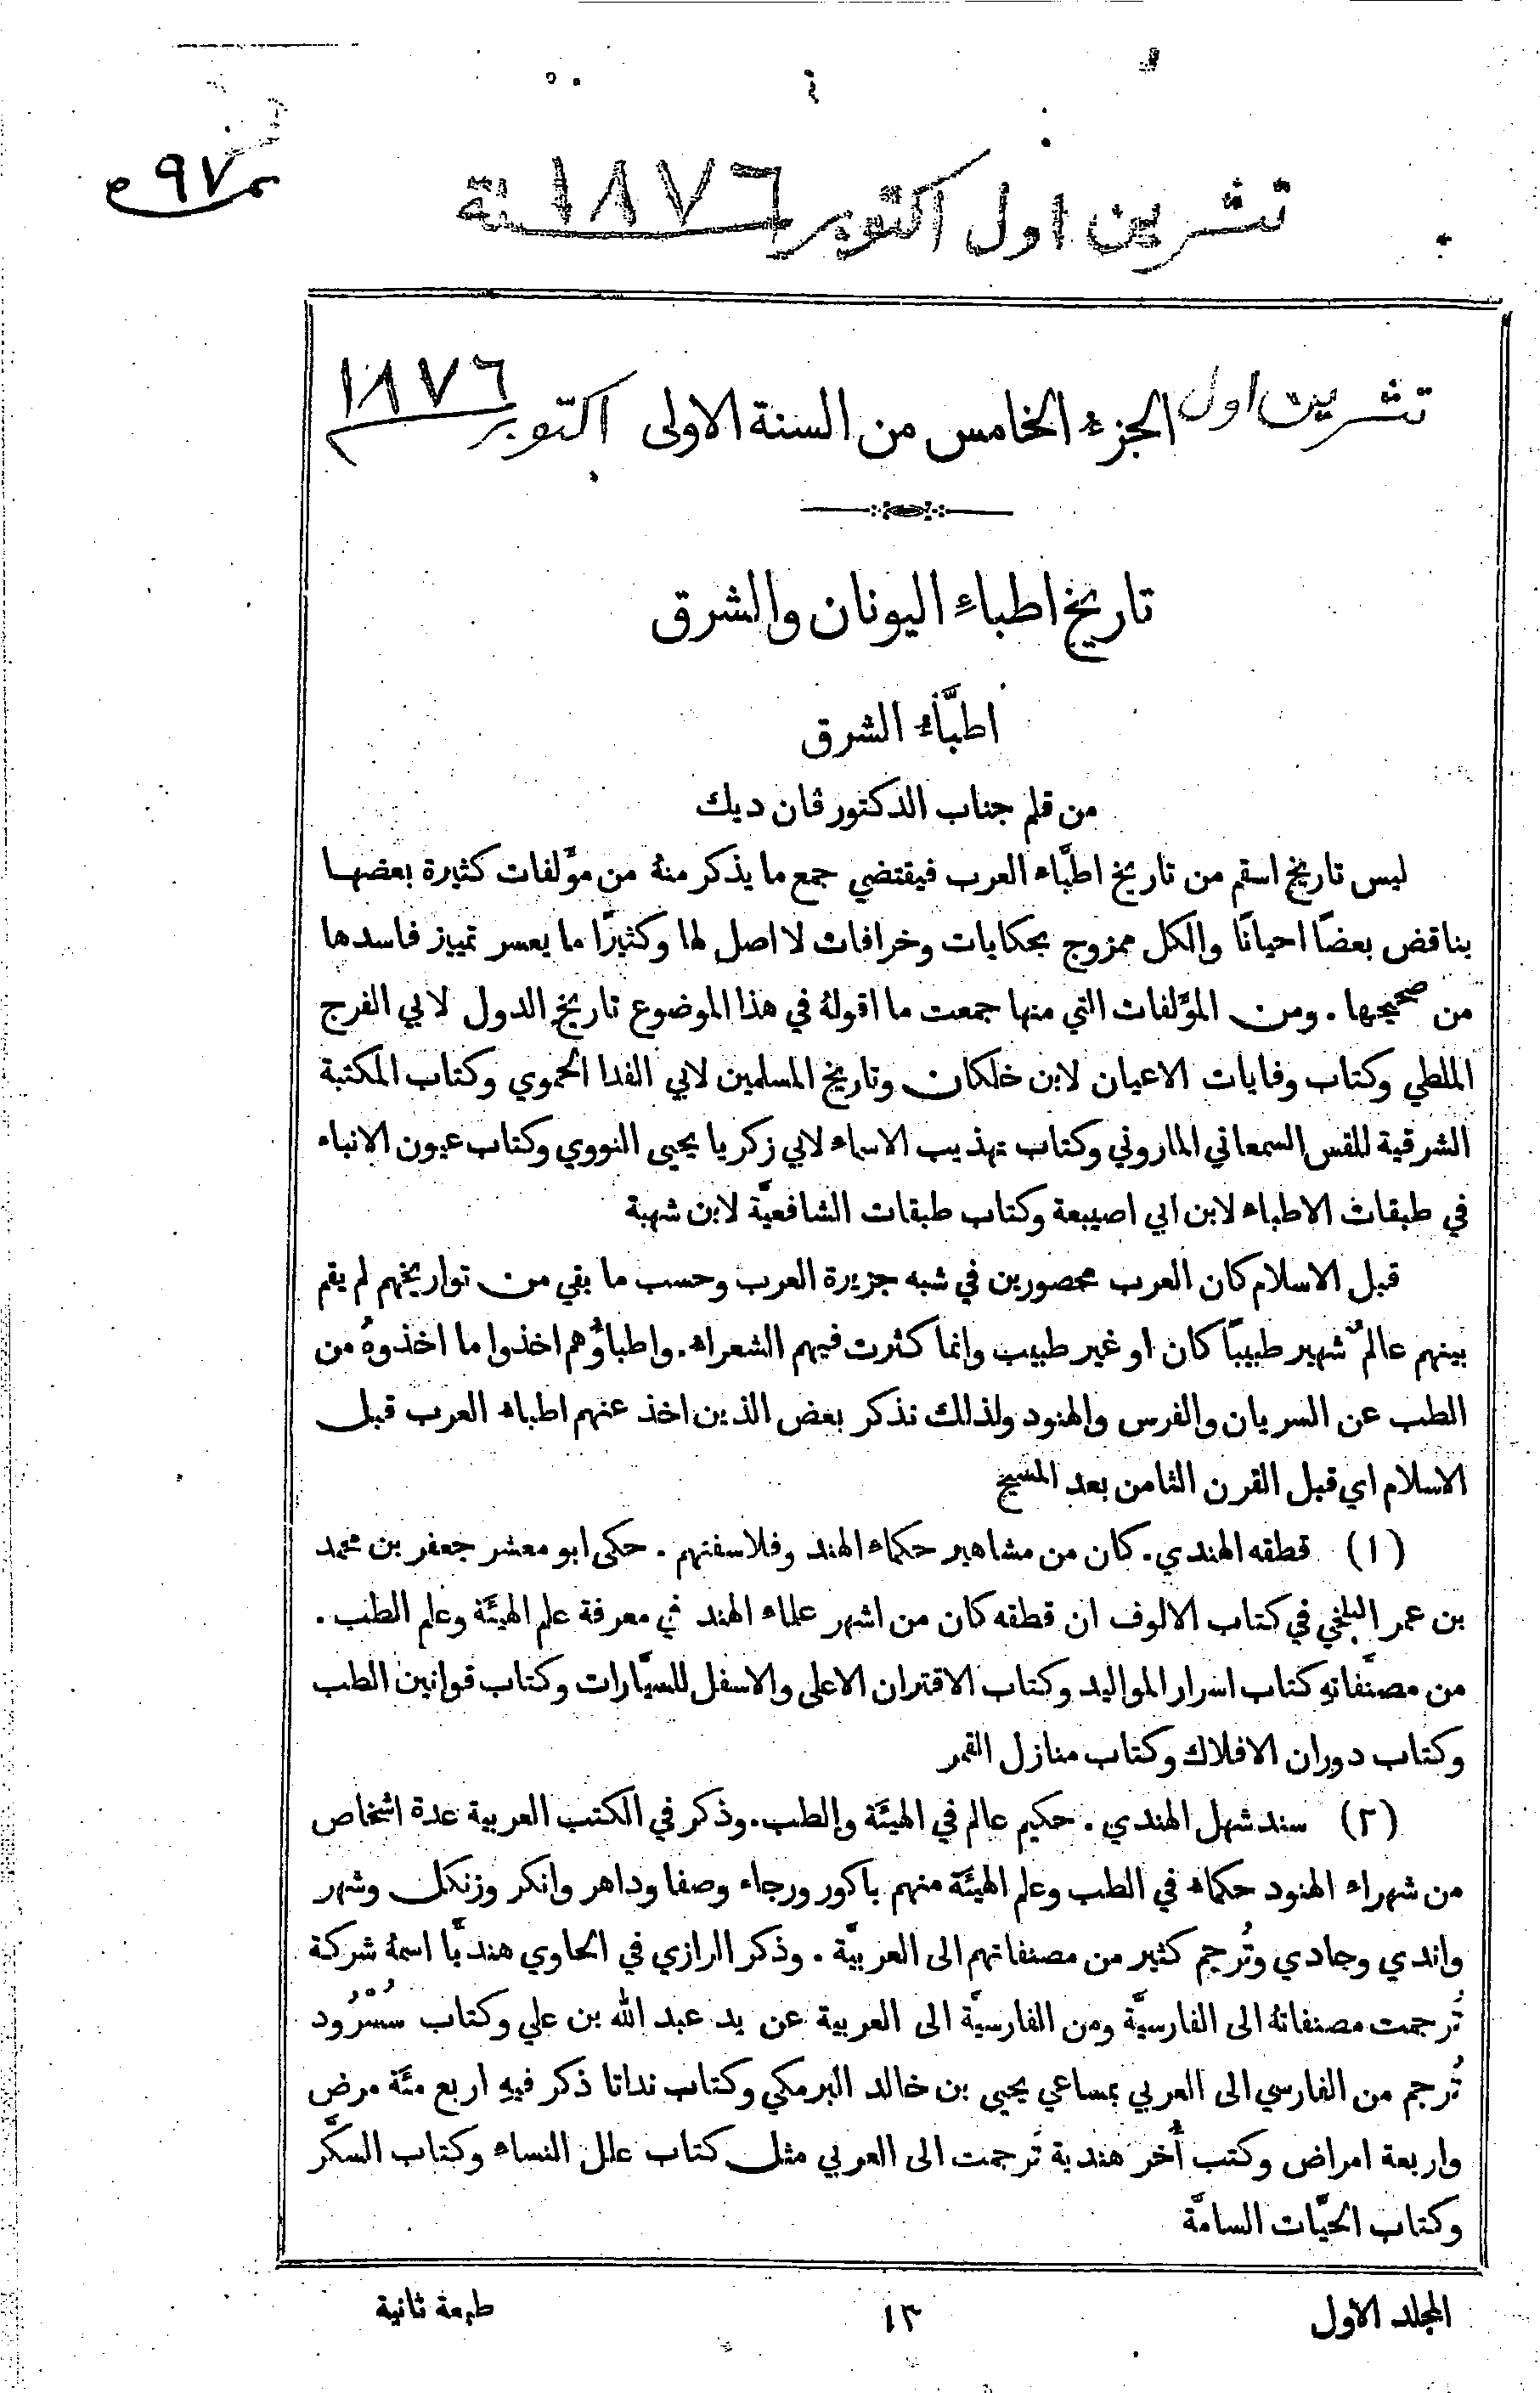 تشرين اول اكتوبر ١٨٧٦ سنة
٩٧
تشرين اول الجزء الخامس من السنة الاولى اكتوبر ١٨٧٦
تاريخ اطباءِ اليونان والشرق
اطبَّاءُ الشرق
من قلم جناب الدكتور ڤان ديك
ليس تاريخ اسقم من تاريخ اطبَّاء العرب فيقتضي جمع ما يذكر منهُ من مؤَلفات كثيرة بعضها
يناقض بعضًا احيانًا والكل ممزوج بحكايات وخرافات لا اصل لها وكثيرًا ما يعسر تمييز فاسدها
من صحيحها . ومن المؤَلفات التي منها جمعت ما اقولهُ في هذا الموضوع تاريخ الدول لابي الفرج
الملطي وكتاب وفايات الاعيان لابن خلكان وتاريخ المسلمين لابي الفدا الحموي وكتاب المكتبة
الشرقية للقس السمعاني الماروني وكتاب تهذيب الاسماء لابي زكريا يحيى النووي وكتاب عيون الانباء
في طبقات الاطباء لابن ابي اصيبعة وكتاب طبقات الشافعيَّة لابن شهبة
قبل الاسلام كان العرب محصورين في شبه جزيرة العرب وحسب ما بقي من تواريخهم لم يقم
بينهم عالمٌ شهير طبيبًا كان او غير طبيب وانما كثرت فيهم الشعراء. واطباؤُهم اخذوا ما اخذوهُ من
الطب عن السريان والفرس والهنود ولذلك نذكر بعض الذين اخذ عنهم اطباء العرب قبل
الاسلام اي قبل القرن الثامن بعد المسيح
(١) قطقه الهندي. كان من مشاهير حكماء الهند وفلاسفتهم . حكى ابو معشر جعفر بن محمد
بن عمر البلخي في كتاب الالوف ان قطقه كان من اشهر علماء الهند في معرفة علم الهيئَة وعلم الطب .
من مصنَّفاتهِ كتاب اسرار المواليد وكتاب الاقتران الاعلى والاسفل للسيَّارات وكتاب قوانين الطب
وكتاب دوران الافلاك وكتاب منازل القمر
(٢) سندشهل الهندي . حكيم عالم في الهيئَة والطب. وذكر في الكتب العربية عدة اشخاص
من شهراء الهنود حكماء في الطب وعلم الهيئَة منهم باكور ورجاء وصفا وداهر وانكر وزنكل وشهر
واندي وجادي وتُرجم كثير من مصنفاتهم الى العربيَّة . وذكر الرازي في الحاوي هنديًّا اسمهُ شركة
تُرجمت مصنفاتهُ الى الفارسيَّة ومن الفارسيَّة الى العربية عن يد عبد الله بن علي وكتاب سُسْرُود
تُرجم من الفارسي الى العربي بمساعي يحيى بن خالد البرمكي وكتاب ندانا ذكر فيهِ اربع مئَة مرض
واربعة امراض وكتب أُخر هندية تُرجمت الى العربي مثل كتاب علل النساء وكتاب السكَّر
وكتاب الحيَّات السامَّة
المجلد الاول ١٣ طبعة ثانية